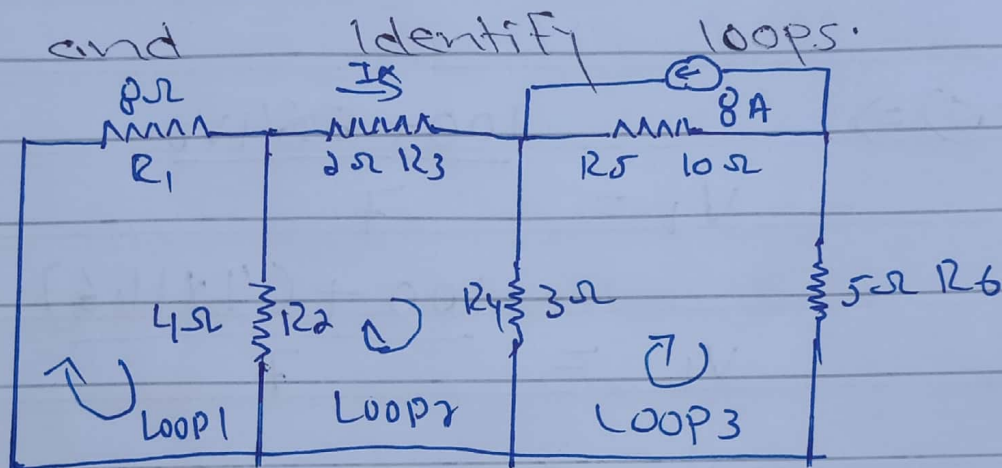 and Identify loops.
8Ω Ix 8A
R1 2Ω R3 R5 10Ω
4Ω R2 R4 3Ω 5Ω R6
LOOP1 LOOP2 LOOP3